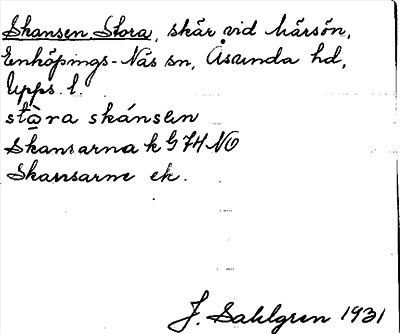 Skansen, Stora, skär vid Märsön,
Enköpings-Näs sn, Åsunda hd,
Upps. l.
stò̱ra skánsen
Skansarna k G 74 NO
Skansarne ek.
J. Sahlgren 1931